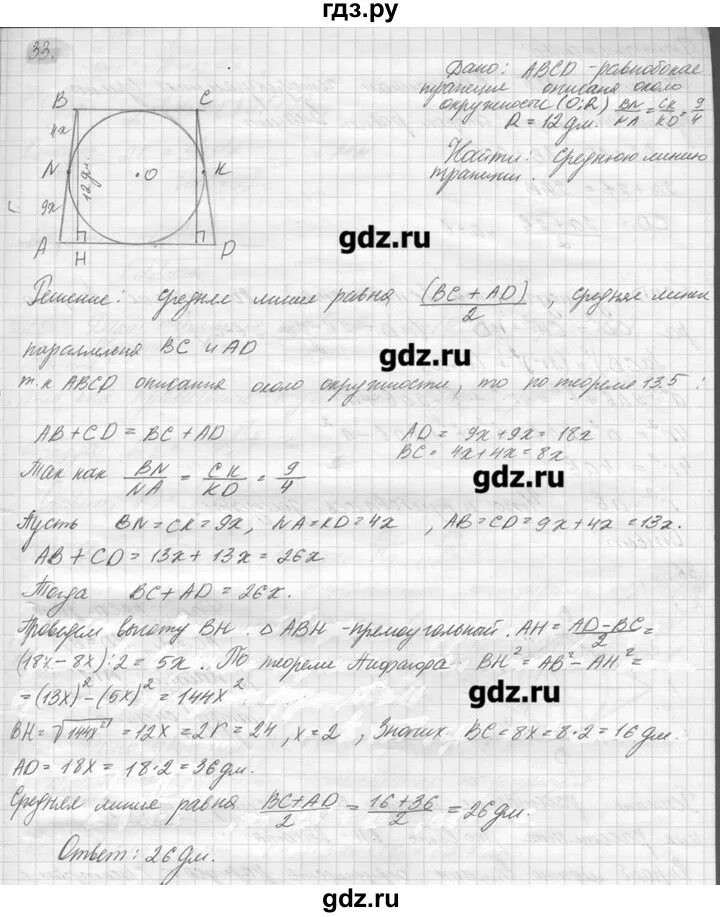 гдз.ру
33.
Дано: ABCD - равнобокая
трапеция описана около
окружности (O;R) BN/NA = CK/KD = 9/4
R = 12 дм.
Найти: Среднюю линию
трапеции.
B C
4x
N 12 дм. O K
9x
A H D
gdz.ru
Решение: Средняя линия равна (BC + AD)/2, средняя линия
параллельна BC и AD
gdz.ru
т.к ABCD описания около окружности, то по теореме 13.5:
AB + CD = BC + AD AD = 9x + 9x = 18x
BC = 4x + 4x = 8x
Так как BN/NA = CK/KD = 9/4
gdz.ru
Пусть BN = CK = 9x, NA = KD = 4x, AB = CD = 9x + 4x = 13x.
AB + CD = 13x + 13x = 26x
Тогда BC + AD = 26x.
Проведем высоту BH. △ ABH - прямоугольный. AH = (AD - BC)/2 =
(18x - 8x) : 2 = 5x. По теореме Пифагора BH² = AB² - AH² =
= (13x)² - (5x)² = 144x²
gdz.ru
BH = √144x² = 12x = 2r = 24, x = 2, Значит BC = 8x = 8·2 = 16 дм.
AD = 18x = 18·2 = 36 дм.
Средняя линия равна (BC + AD)/2 = (16 + 36)/2 = 26 дм.
Ответ: 26 дм.
gdz.ru
gdz.ru